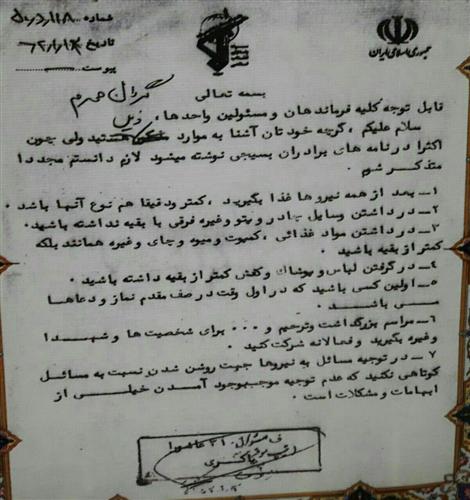 شماره
تاریخ ۶۲/۱/۱۳
پیوست
جمهوری اسلامی ایران
گردان محرم
بسمه تعالی
قابل توجه کلیه فرماندهان و مسئولین واحدها،
سلام علیکم، گرچه خودتان آشنا به موارد ذیل هستید ولی چون
اکثرا در نامه های برادران بسیجی نوشته میشود لازم دانستم مجددا
متذکر شوم.
۱- بعد از همه نیروها غذا بگیرید، کمتر و دقیقا هم نوع آنها باشد.
۲- در داشتن وسایل چادر و پتو وغیره فرقی با بقیه نداشته باشید.
۳- در داشتن مواد غذائی، کمپوت و میوه و چای وغیره همانند بلکه
کمتر از بقیه باشید.
۴- در گرفتن لباس و پوشاک و کفش کمتر از بقیه داشته باشید.
۵- اولین کسی باشید که در اول وقت در صف مقدم نماز و دعاها
می باشد.
۶- مراسم بزرگداشت و ترحیم و ... برای شخصیت ها و شهدا
وغیره بگیرید و فعالانه شرکت کنید.
۷- در توجیه مسائل به نیروها جهت روشن شدن نسبت به مسائل
کوتاهی نکنید که عدم توجیه موجب بوجود آمدن خیلی از
ابهامات و مشکلات است.
ف لشکر ۳۱ عاشورا